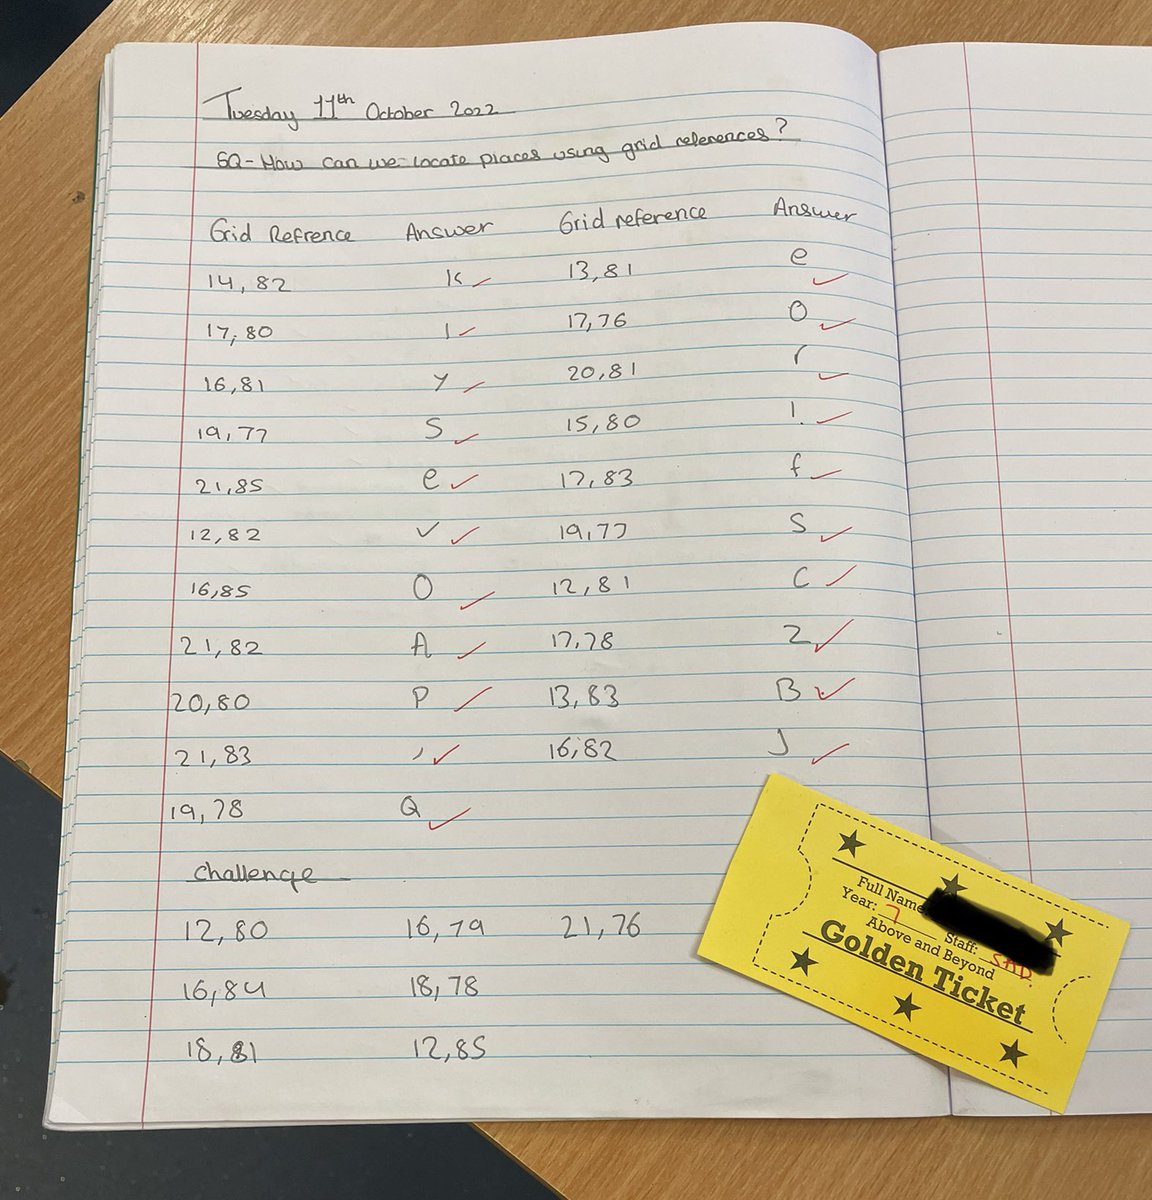 Tuesday 11th October 2022
SQ-How can we locate places using grid references?
Grid Refrence Answer Grid reference Answer
14,82 K 13,81 e
17,80 l 17,76 O
16,81 y 20,81 r
19,77 S 15,80 !
21,85 e 17,83 f
12,82 v 19,77 S
16,85 O 12,81 C
21,82 A 17,78 Z
20,80 P 13,83 B
21,83 , 16,82 J
19,78 Q
Challenge
12,80 16,79 21,76
16,84 18,78
18,81 12,85
Full Name
Year: 7 Staff: SHD
Above and Beyond
Golden Ticket